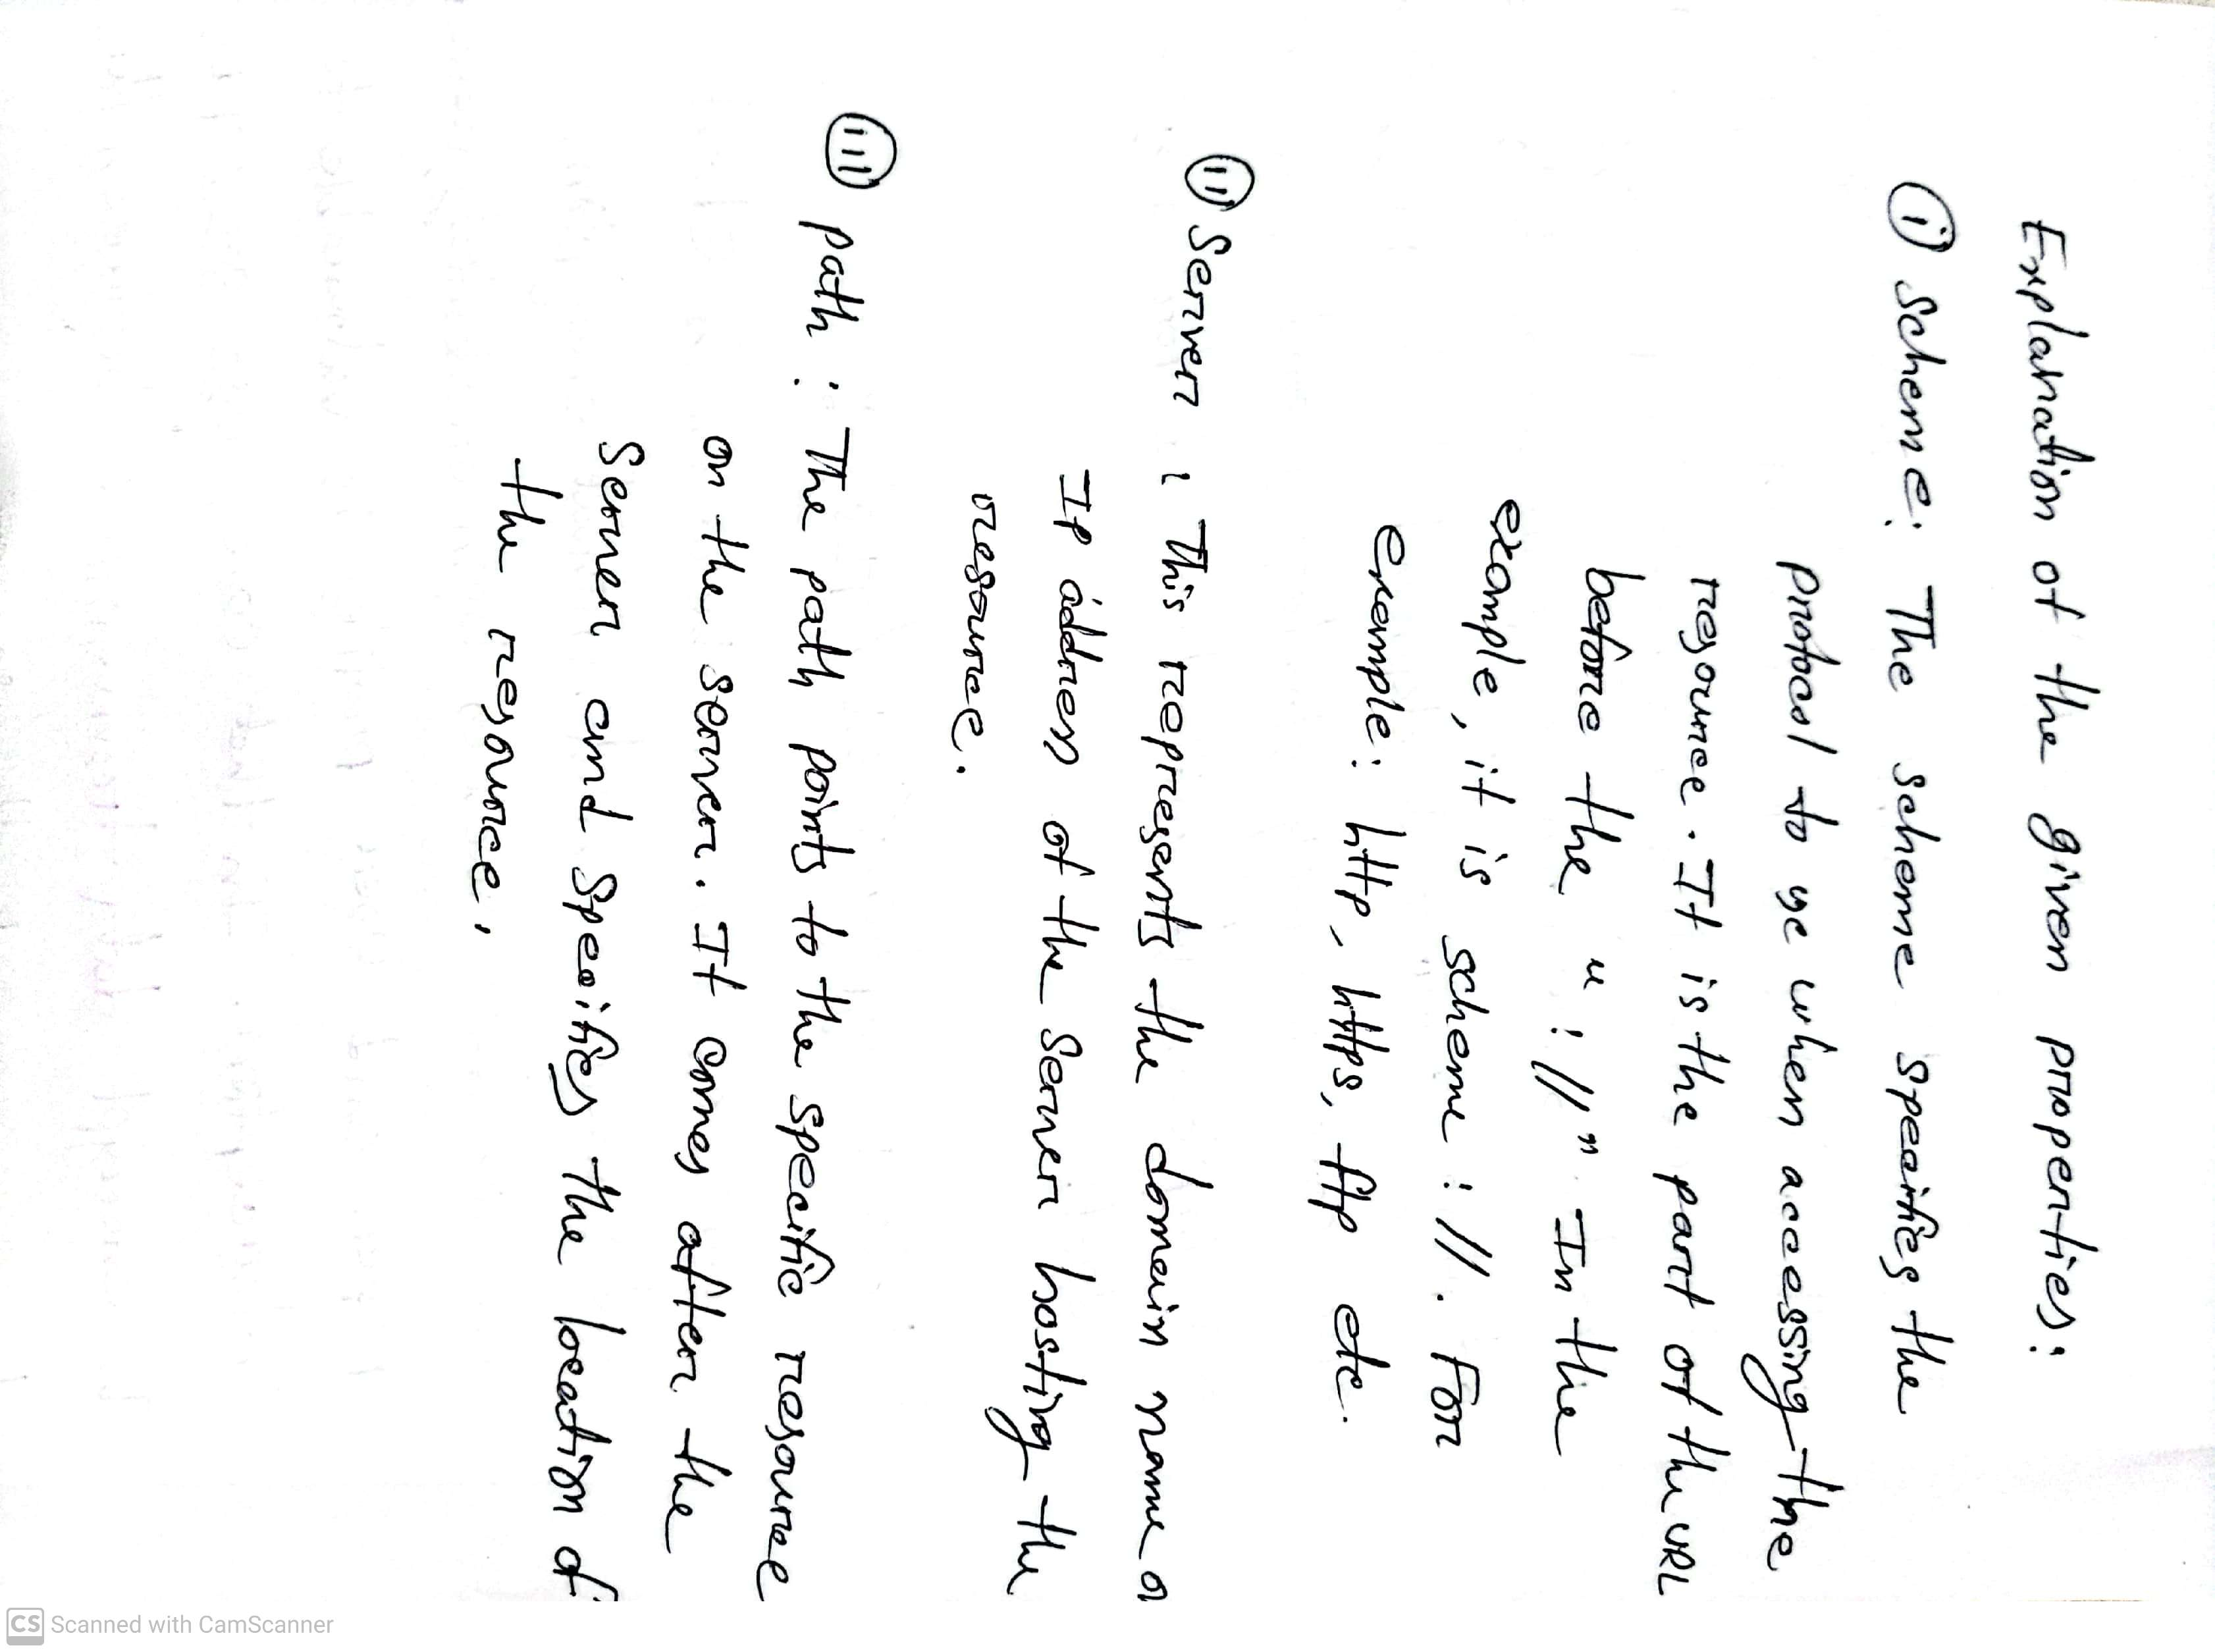 Explanation of the given properties:
(i) Scheme: The scheme specifies the
protocol to use when accessing the
resource. It is the part of the URL
before the "://" In the
example, it is scheme://. For
example: http, https, ftp etc.
(ii) Server: This represents the domain name or
IP address of the server hosting the
resource.
(iii) path: The path points to the specific resource
on the server. It comes after the
server and specifies the location of
the resource.
CS Scanned with CamScanner